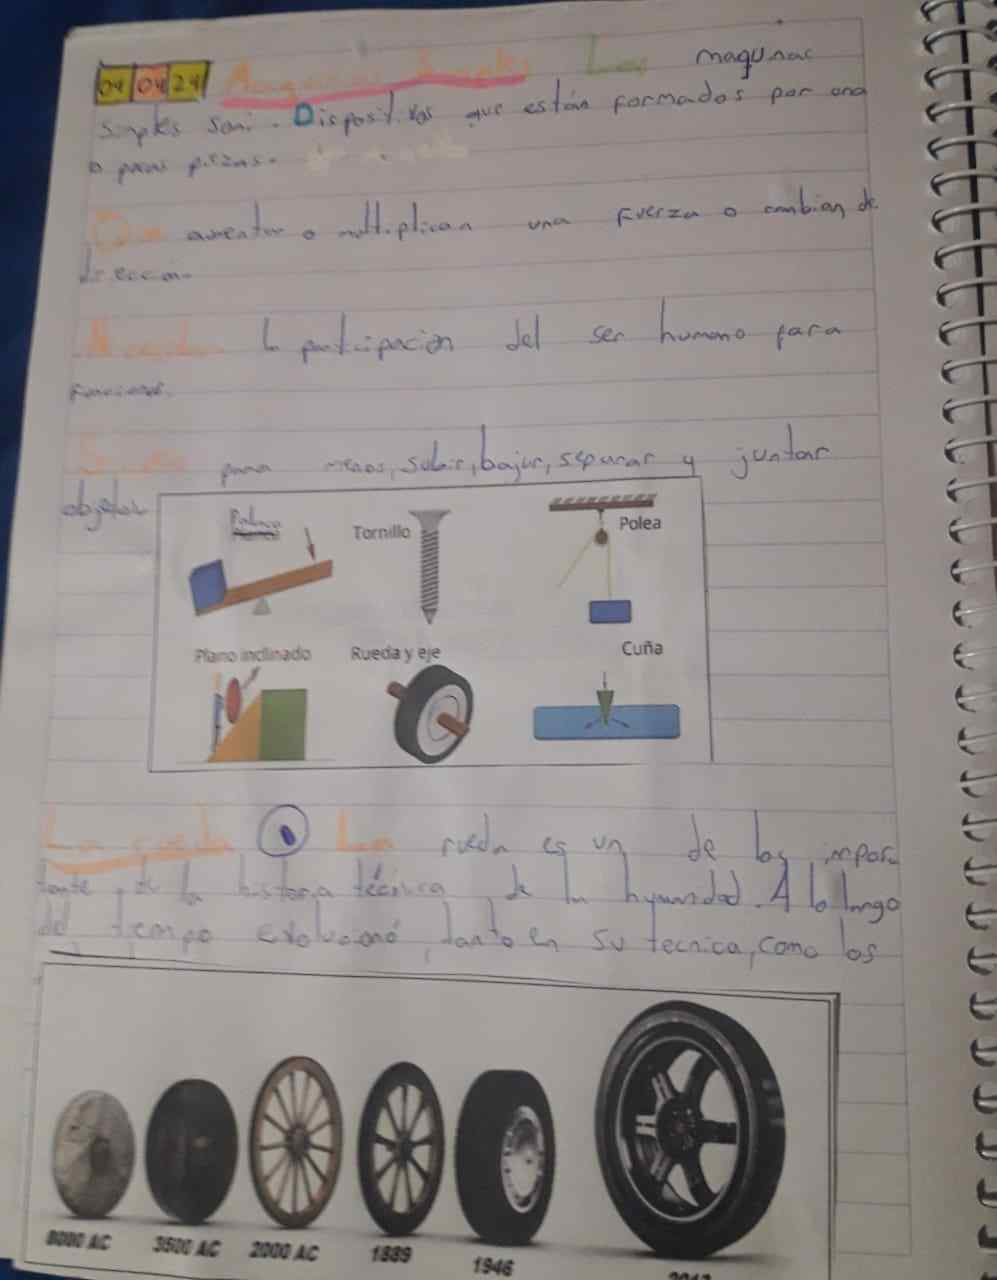 04 04 24 Maquinas Simples Las maqunas
simples son: Dispositivos que están formados por una
o pocas piezas.
Que aumentan o multiplican una fuerza o cambian de
dirección.
Necesitan la participación del ser humano para
funcionar.
para subir, bajar, separar y juntar
objetos
Palanca
Tornillo
Polea
Plano inclinado
Rueda y eje
Cuña
La rueda La rueda es un de los impor
tante de la historia técnica de la humanidad. A lo largo
del tiempo evolucionó, tanto en su tecnica, como los
8000 AC
3500 AC
2000 AC
1889
1946